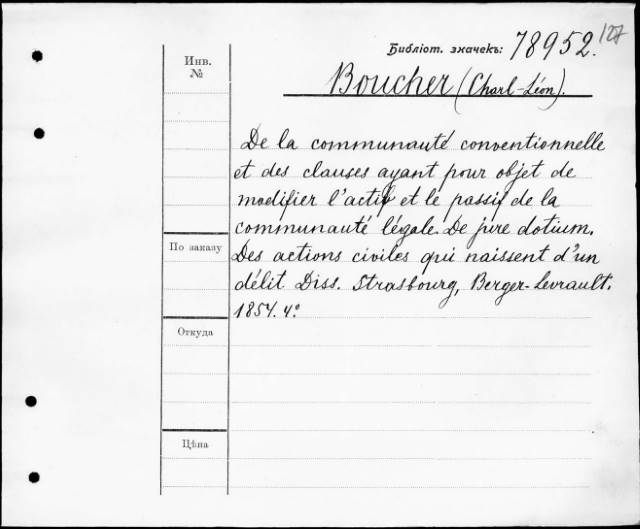 127
Библіот. значекъ: 78952.
Инв.
№
Boucher (Charl-Léon).
De la communauté conventionnelle
et des clauses ayant pour objet de
modifier l'actif et le passif de la
communauté légale. De jure dotium.
Des actions civiles qui naissent d'un
délit Diss. Strasbourg, Berger-Levrault.
1854. 4º
По заказу
Откуда
Цѣна